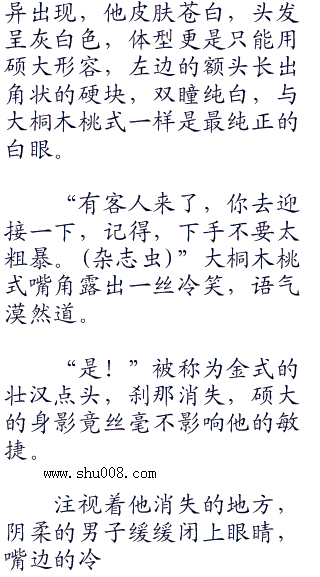 异出现，他皮肤苍白，头发
呈灰白色，体型更是只能用
硕大形容，左边的额头长出
角状的硬块，双瞳纯白，与
大桐木桃式一样是最纯正的
白眼。
“有客人来了，你去迎
接一下，记得，下手不要太
粗暴。(杂志虫)”大桐木桃
式嘴角露出一丝冷笑，语气
漠然道。
“是！”被称为金式的
壮汉点头，刹那消失，硕大
的身影竟丝毫不影响他的敏
捷。
www.shu008.com
注视着他消失的地方，
阴柔的男子缓缓闭上眼睛，
嘴边的冷